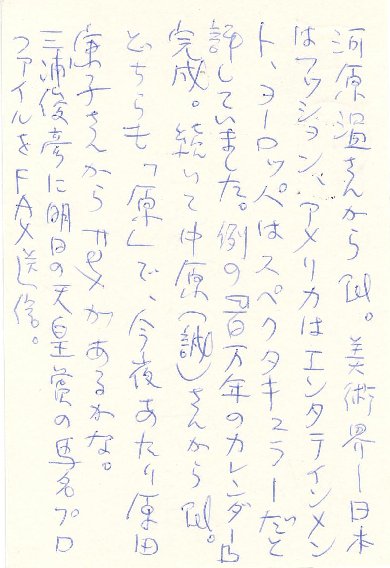 河原温さんから℡。美術界ー日本
はファッション、アメリカはエンタテインメン
ト、ヨーロッパはスペクタキュラーだと
評していました。例の百万年のカレンダーB
完成。続いて中原(誠)さんから℡。
どちらも「原」で、今夜あたり原田
さんから があるかな。
三浦俊彦に明日の天皇賞の馬名プロ
ファイルをFAX送信。